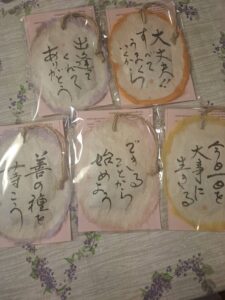 出逢って
くれて
ありがとう
大丈夫
すべて
うまく
いくから
善の種を
蒔こう
できる
ことから
始めよう
今日一日を
大事に
生きる